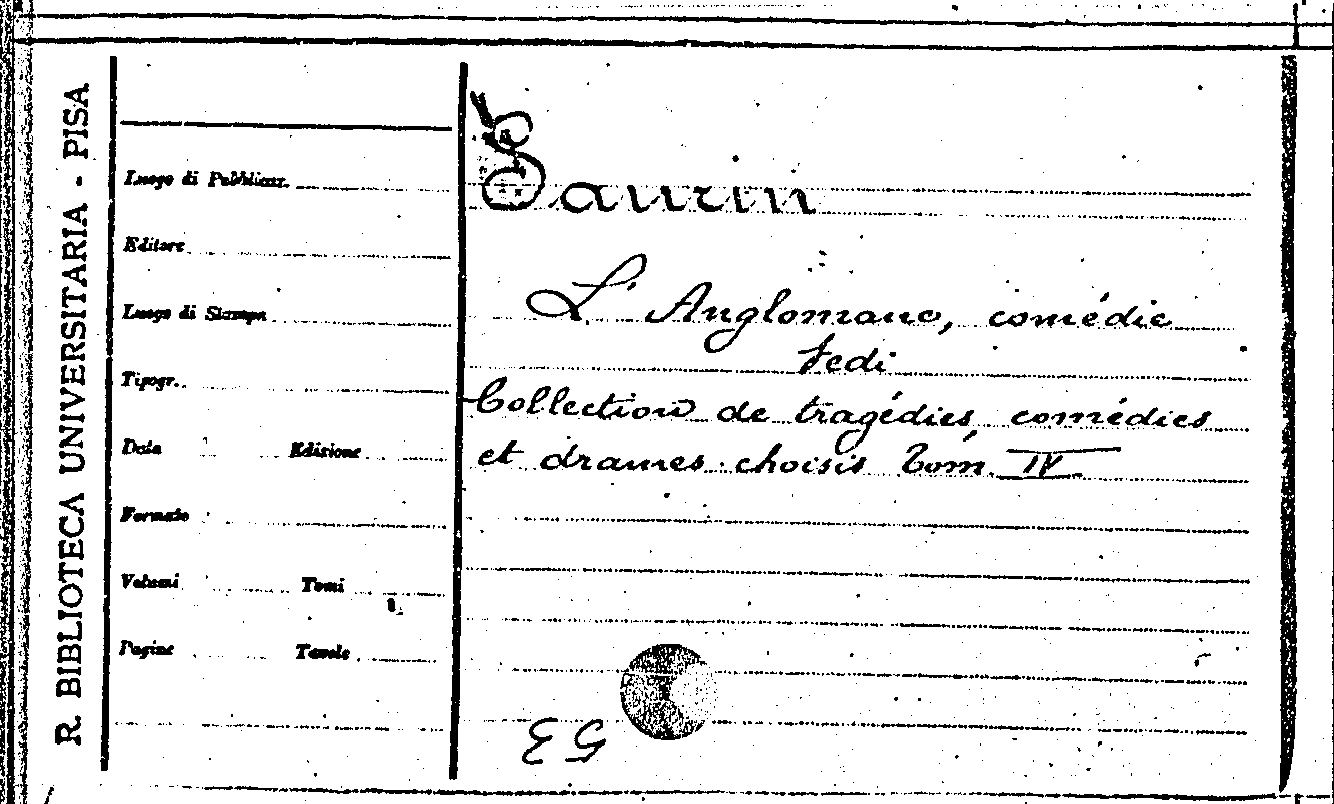 R. BIBLIOTECA UNIVERSITARIA - PISA
Luogo di Pubblicaz.
Editore
Luogo di Stampa
Tipogr.
Data Edizione
Formato
Volumi Tomi
Pagine Tavole
Saurin
L'Anglomane, comédie
Vedi
Collection de tragédies, comédies
et drames choisis Tom. IV